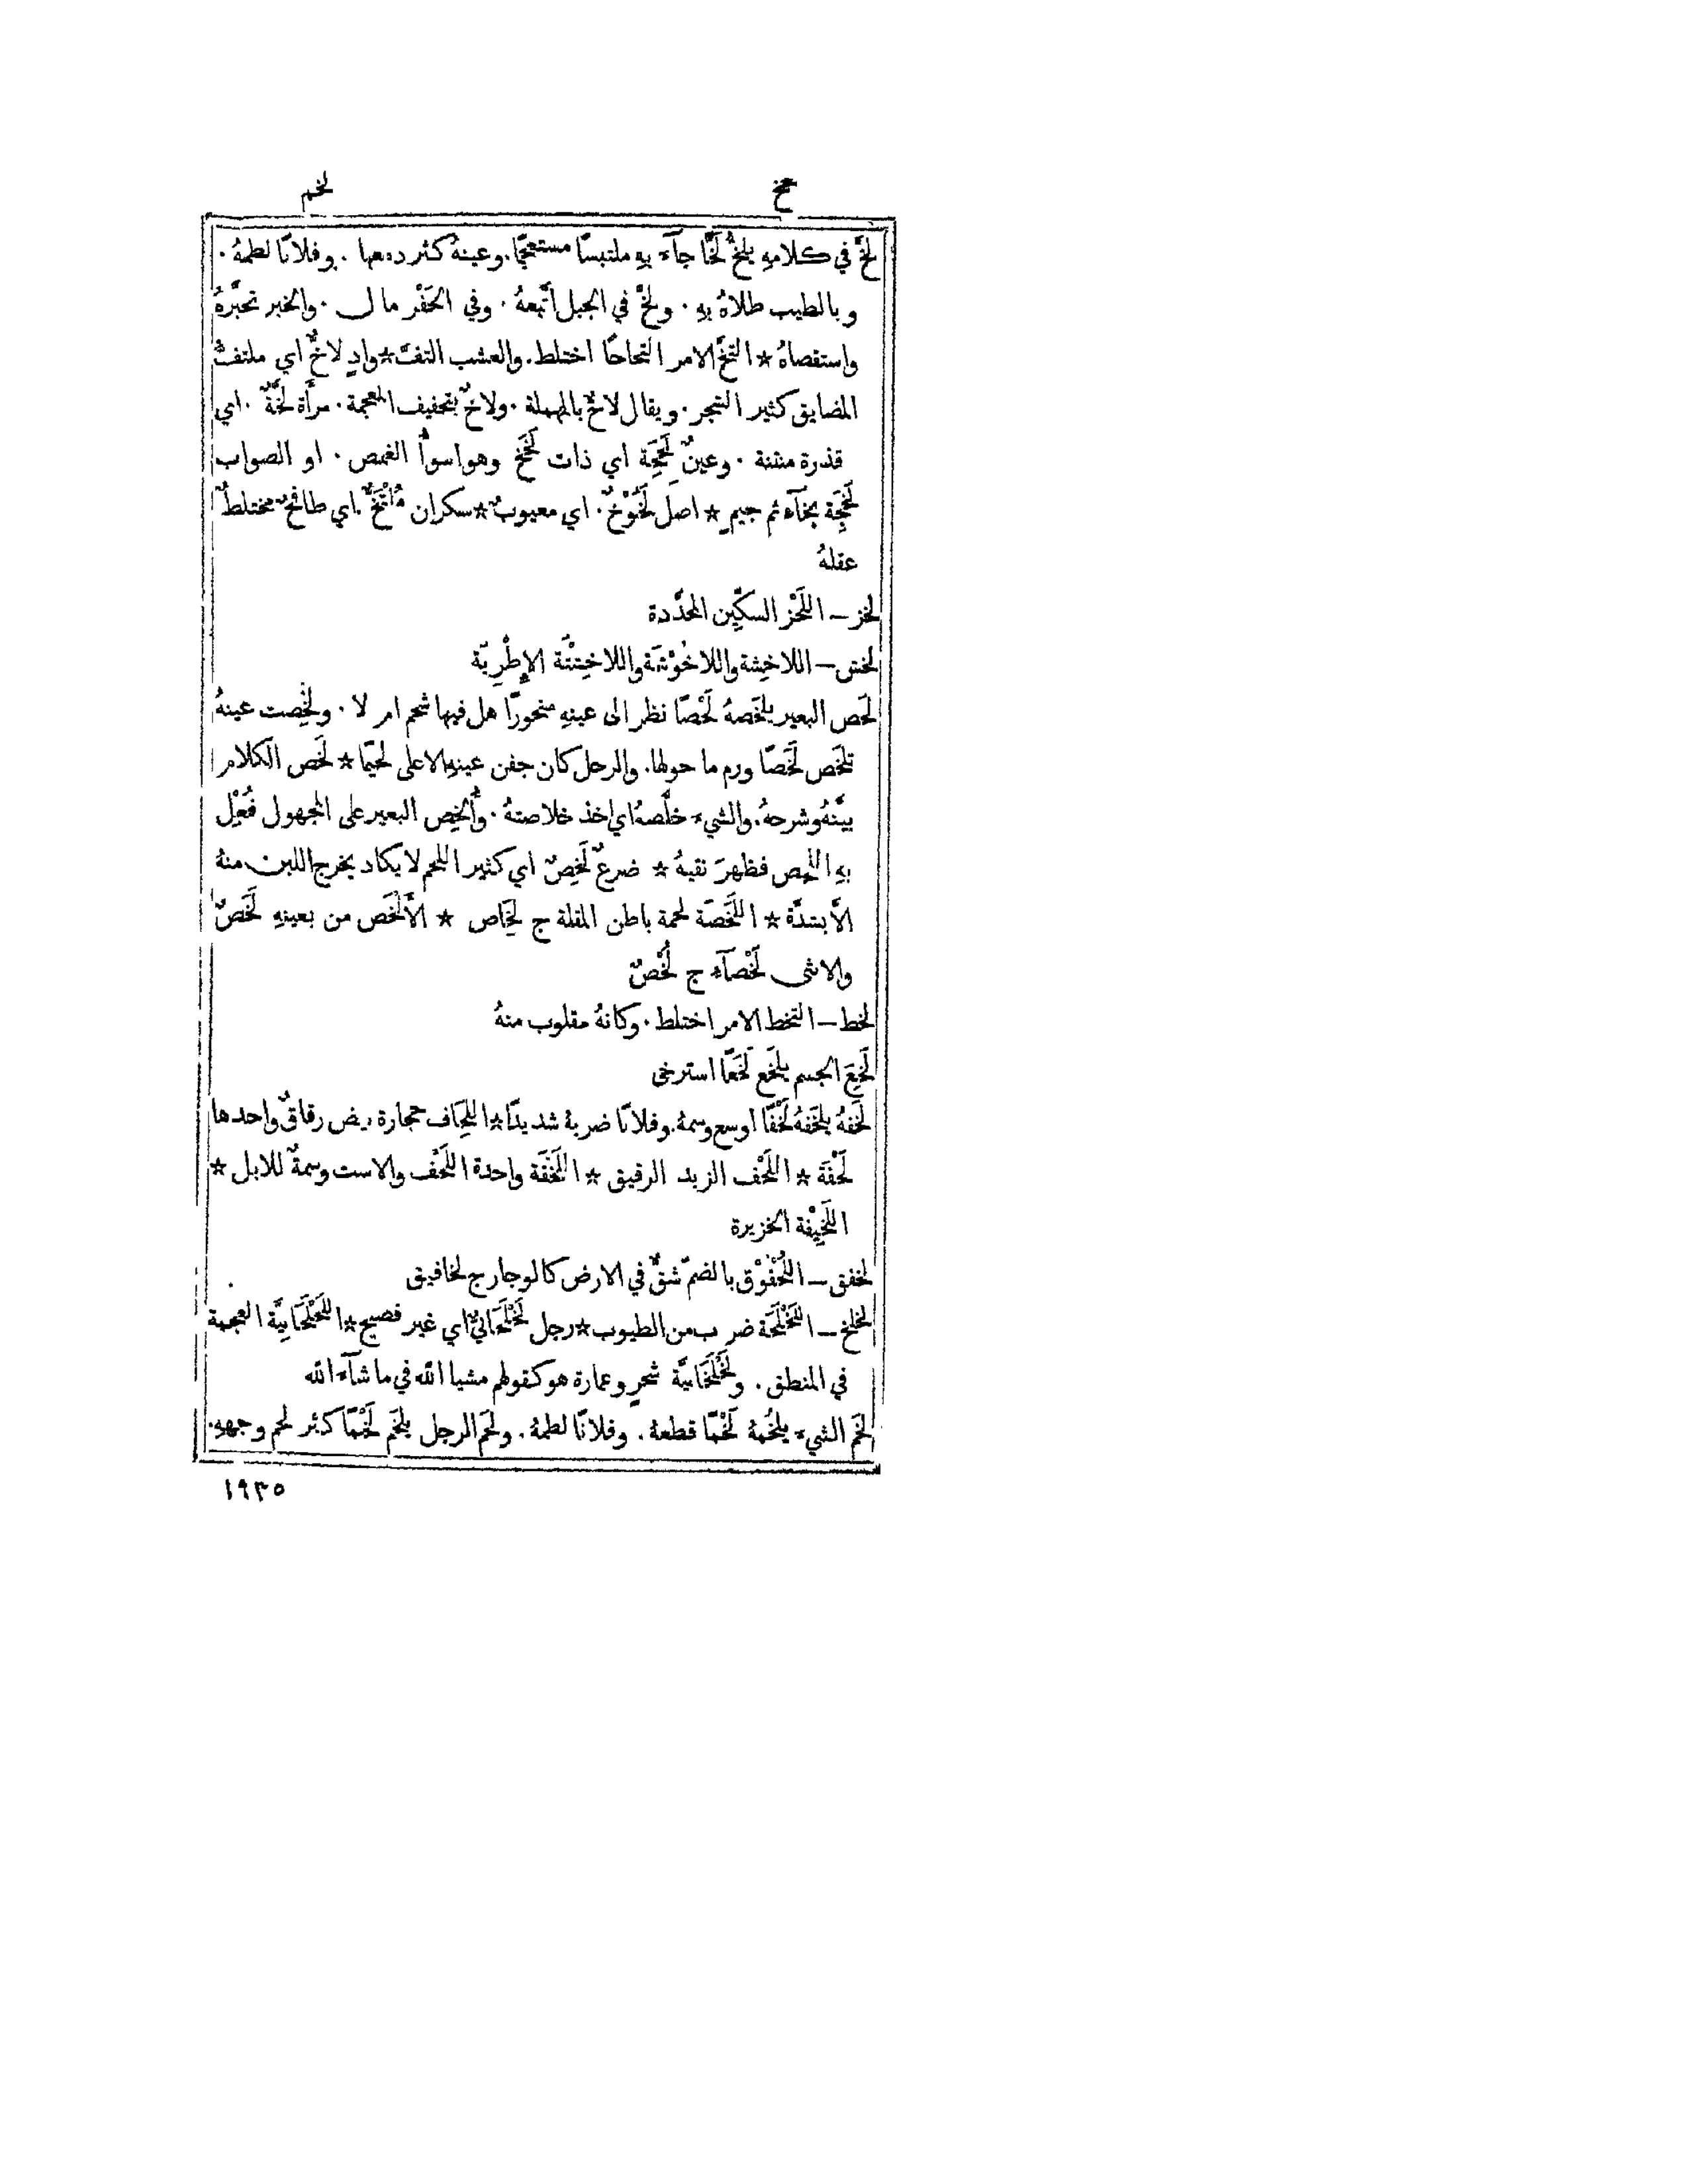 لخ لخم
لَخَّ في كلامهِ يلخُّ لَخًّا جآءَ بهِ ملتبسًا مستعجمًا. وعينهُ كثر دمعها . وفلانًا لطمهُ .
وبالطيب طلاهُ بهِ . ولخَّ في الجبل اتَّبعهُ . وفي الحَفْر مال . والخبر تخبَّرهُ
واستقصاهُ ☆ التخَّ الامر التخاخًا اختلط. والعشب التفَّ ☆ وادٍ لاخٌّ اي ملتفُّ
المضايق كثير الشجر. ويقال لاحٌّ بالمهملة . ولاخٌ بتخفيف المعجمة . مرأَة لخَّةٌ . اي
قذرة منتنة . وعينٌ لَخِخَة اي ذات لَخَخ وهو اسوأُ الغمص . او الصواب
لَخِجَة بخآءٍ ثم جيمٍ ☆ اصل لَخُوْخٌ . اي معيوبٌ ☆ سكران مُلْتَخٌّ . اي طافحٌ مختلطٌ
عقلهُ
لخز — اللَخْز السكّين المحدَّدة
لخش — اللاخِشة واللاخُوْشَة واللاخِشْتَة الإِطْرِيّة
لَخَص البعير يلخَصهُ لَخْصًا نظر الى عينهِ منحورًا هل فيها شحم ام لا . ولَخِصت عينهُ
تلخَص لَخَصًا ورم ما حولها. والرجل كان جفن عينهِ الاعلى لحيمًا ☆ لخَّص الكلام
بيَّنهُ وشرحهُ. والشيءَ خلَّصهُ اي اخذ خلاصتهُ . وأُلْخِص البعير على المجهول فُعِل
بهِ اللخص فظهرَ نقيهُ ☆ ضرعٌ لَخِصٌ اي كثير اللحم لا يكاد يخرج اللبن منهُ
الَّا بشدَّة ☆ اللَّخَصَة لحمة باطن المقلة ج لِخَاص ☆ الأَلْخَص من بعينهِ لَخَصٌ
والانثى لَخْصآء ج لُخْصٌ
لخط — التخط الامر اختلط . وكانهُ مقلوب منهُ
لَخِعَ الجسم يلخَع لَخَعًا استرخى
لَخَفهُ يلخَفهُ لَخْفًا اوسع وسمهُ. وفلانًا ضربهُ شديدًا ☆ اللِخَاف حجارة بيض رقاقٌ واحدها
لَخْفَة ☆ اللَخْف الزبد الرقيق ☆ اللَخْفَة واحدة اللَخْف والاست وسمةٌ للابل ☆
اللَخِيْفة الخزيرة
لخفق — اللُخْفُوْق بالضمّ شقٌّ في الارض كالوجار ج لخافيق
لخلخ — اللَخْلَخَة ضرب من الطيوب ☆ رجل لَخْلَخَانيٌّ اي غير فصيح ☆ اللَخْلَخَانِيَّة العجمة
في المنطق . ولَخْلَخَانيَّة شحرٍ وعمارة هو كقولهم مشيا الله في ما شآءَ الله
لَخَم الشيءَ يلخُمهُ لَخْمًا قطعهُ . وفلانًا لطمهُ . ولخَم الرجل يلخَم لَخْمًا كثر لحم وجههِ.
١٩٣٥